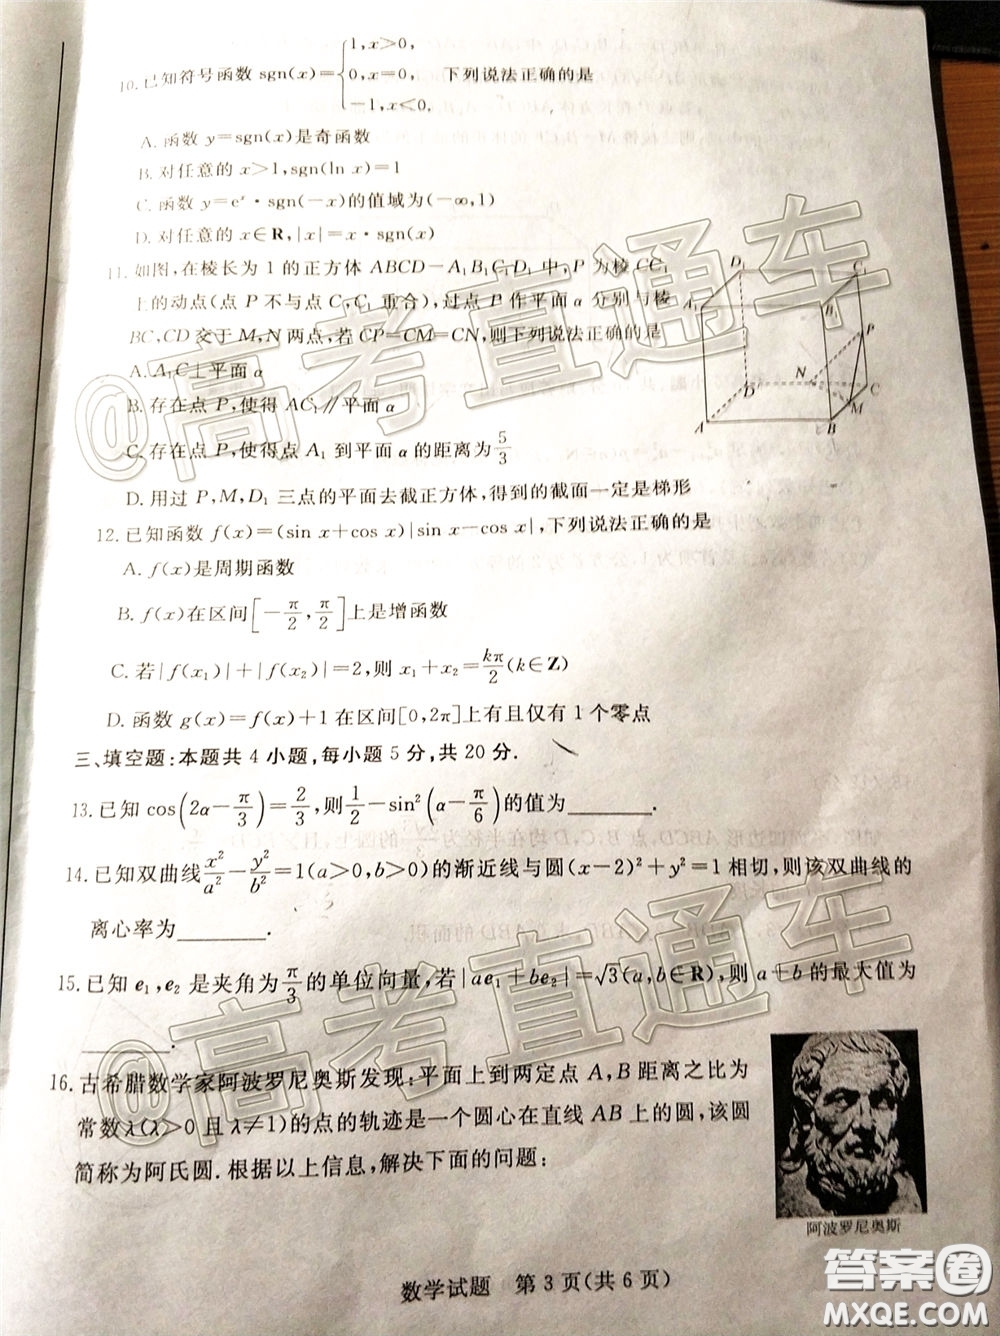 10.已知符号函数 sgn(x)={1,x>0, 0,x=0, -1,x<0, 下列说法正确的是
A.函数 y=sgn(x)是奇函数
B.对任意的 x>1,sgn(ln x)=1
C.函数 y=eˣ·sgn(-x)的值域为(-∞,1)
D.对任意的 x∈R,|x|=x·sgn(x)
11.如图,在棱长为 1 的正方体 ABCD-A₁B₁C₁D₁ 中,P 为棱 CC₁
上的动点(点 P 不与点 C,C₁ 重合),过点 P 作平面 α 分别与棱
BC,CD 交于 M,N 两点,若 CP=CM=CN,则下列说法正确的是
A.A₁C⊥平面 α
B.存在点 P,使得 AC₁∥平面 α
C.存在点 P,使得点 A₁ 到平面 α 的距离为5/3
D.用过 P,M,D₁ 三点的平面去截正方体,得到的截面一定是梯形
D₁
C₁
A₁
B₁
P
N
D
C
M
A
B
12.已知函数 f(x)=(sin x+cos x)|sin x-cos x|,下列说法正确的是
A.f(x)是周期函数
B.f(x)在区间[-π/2,π/2]上是增函数
C.若|f(x₁)|+|f(x₂)|=2,则 x₁+x₂=kπ/2(k∈Z)
D.函数 g(x)=f(x)+1 在区间[0,2π]上有且仅有 1 个零点
三、填空题:本题共 4 小题,每小题 5 分,共 20 分.
13.已知 cos(2α-π/3)=2/3,则1/2-sin²(α-π/6)的值为________.
14.已知双曲线x²/a²-y²/b²=1(a>0,b>0)的渐近线与圆(x-2)²+y²=1 相切,则该双曲线的
离心率为________.
15.已知 e₁,e₂ 是夹角为π/3的单位向量,若|ae₁+be₂|=√3(a,b∈R),则 a+b 的最大值为
________.
16.古希腊数学家阿波罗尼奥斯发现:平面上到两定点 A,B 距离之比为
常数 λ(λ>0 且 λ≠1)的点的轨迹是一个圆心在直线 AB 上的圆,该圆
简称为阿氏圆.根据以上信息,解决下面的问题:
阿波罗尼奥斯
数学试题 第 3 页(共 6 页)
@高考直通车
@高考直通车
答案圈
MXQE.COM